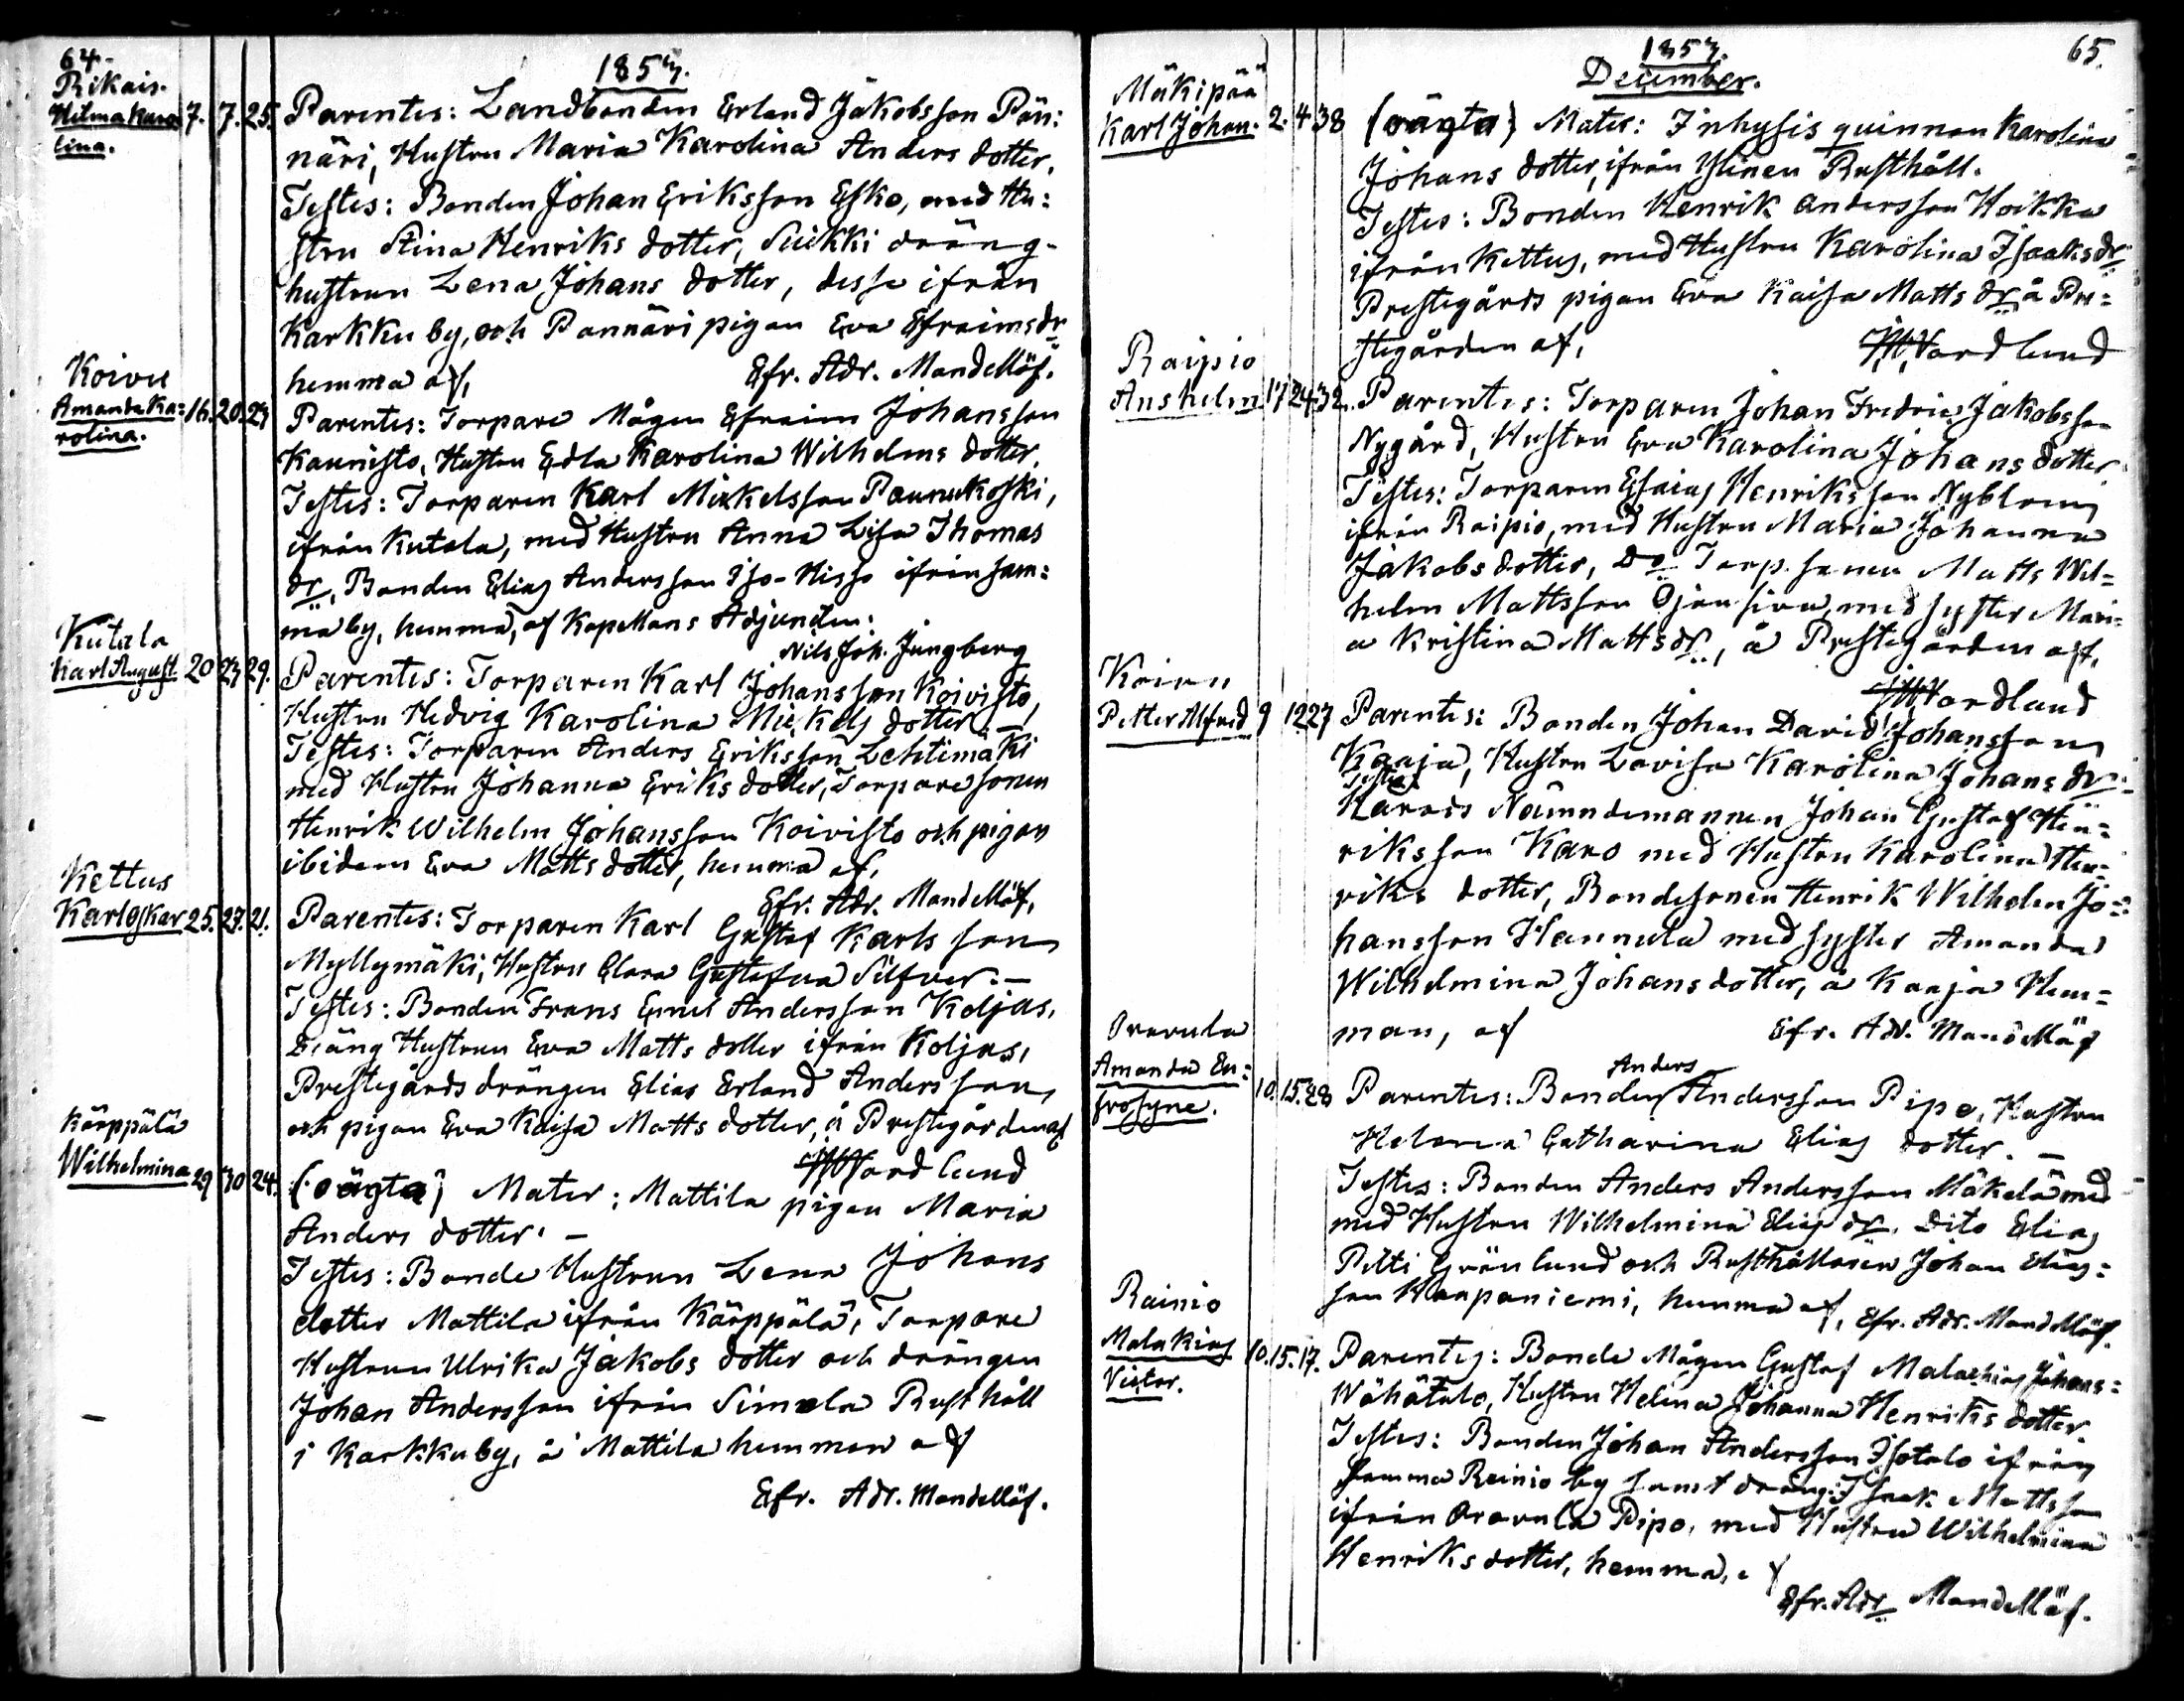 64-
1857.
Rikais.
Hilma Karo=
lina.
7. 7. 25.
Parentes: Landbonden Erland Jakobsson Pän:
näri, Hustru Maria Karolina Anders dotter,
Testes: Bonden Johan Eriksson Esko, med Hu:
stru Stina Henriks dotter, Suikki dräng-
hustrun Lena Johans dotter, desse ifrån
Karkku by, och Pannäri pigan Eva Efraims dr
hemma af,
Efr. Adr. Mandellöf.
Koivu
Amanda Ka=
rolina.
16. 20. 27
Parentes: Torpare Mågen Efraim Johansson
Kaunisto, Hustru Edla Karolina Wilhelms dotter.
Testes: Torparen Karl Mickelsson Paunukoski,
ifrån Kutala, med Hustru Anna Lisa Thomas
dr, Bonden Elias Andersson Iso-Hisso ifrån sam:
ma by, hemma, af Kapellans Adjunten:
Nils Joh. Jungberg
Kutala
Karl August.
20 27 29.
Parentes: Torparen Karl Johansson Koivisto,
Hustru Hedvig Karolina Mickels dotter. —
Testes: Torparen Anders Eriksson Lehtimäki
med Hustru Johanna Eriks dotter, Torparesonen
Henrik Wilhelm Johansson Koivisto och pigan
ibidem Eva Matts dotter, hemma af,
Efr. Adr. Mandellöf,
Kettus
Karl Oskar
25. 27. 21.
Parentes: Torparen Karl Gustaf Karlsson
Myllymäki, Hustru Clara Gustafva Silfver. —
Testes: Bonden Frans Emil Andersson Koljas,
Dräng Hustrun Eva Matts dotter ifrån Koljas,
Prestegårds drängen Elias Erland Andersson,
och pigan Eva Kaisa Matts dotter, å Prestegården af
Nordlund
Kärppälä
Wilhelmina
29 30 24.
(oägta) Mater: Mattila pigan Maria
Anders dotter. —
Testes: Bonde Hustrun Lena Johans
dotter Mattila ifrån Kärppälä, Torpare
Hustrun Ulrika Jakobs dotter och drängen
Johan Andersson ifrån Simola Rusthåll
i Karkku by, å Mattila hemman af
Efr. Adr. Mandellöf.
65.
1857.
December.
Mäkipää
Karl Johan.
2. 4 38
(oägta) Mater: Inhysis quinnan Karolina
Johans dotter, ifrån Ylinen Rusthåll.
Testes: Bonden Henrik Andersson Hoikka
ifrån Kettus, med Hustru Karolina Isaks dr
Prestegårds pigan Eva Kaisa Matts dr å Pre=
stegården af,
Nordlund
Raipio
Anshelm
17 24 32.
Parentes: Torparen Johan Fredric Jakobsson
Nygård, Hustru Eva Karolina Johans dotter
Testes: Torparen Esaias Henriksson Nyblom,
ifrån Raipio, med Hustru Maria Johanna
Jakobs dotter, Do Torp. sonen Matts Wil=
helm Mattsson Ojansivu, med syster Mari=
a Kristina Matts dr, å Prestegården af,
Nordlund
Koivu
Petter Alfred
9 12 27
Parentes: Bonden Johan David Johansson
Kaaja, Hustru Lovisa Karolina Johans dr
Testes
Karois Nämndemannen Johan Gustaf Hen=
riksson Karo med Hustru Karolina Hen=
riks dotter, Bondesonen Henrik Wilhelm Jo=
hansson Hannula med syster Amanda
Wilhelmina Johans dotter, å Kaaja Hem=
man, af
Efr. Adr. Mandellöf
Oravula
Amanda Eu=
frosyne.
10. 15. 28
Anders
Parentes: Bonden Andersson Pipo, Hustru
Helena Catharina Elias dotter. —
Testes: Bonden Anders Andersson Mäkelä med
med Hustru Wilhelmina Elias dr. Dito Elias
Pitti Grönlund och Rusthållaren Johan Elias=
son Kaapaniemi, hemma af, Efr. Adr. Mandellöf.
Rainio
Malakias
Victor.
10. 15. 17.
Parentes: Bonde Mågen Gustaf Malachias Johans=
Wähätalo, Hustru Helena Johanna Henriks dotter.
Testes: Bonden Johan Andersson Isotalo ifrån
samma Reinio by samt dräng: Isak Mattsson
ifrån Oravula Pipo, med Hustru Wilhelmina
Henriks dotter, hemma, af
Efr. Adr Mandellöf.